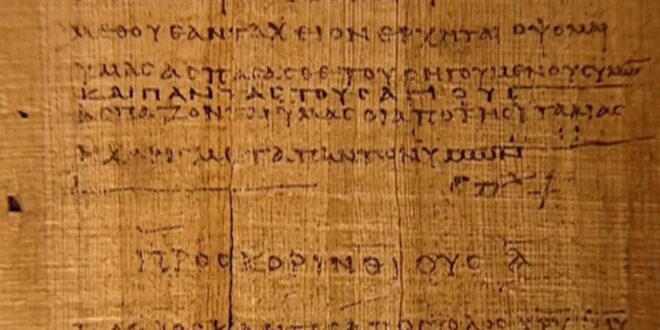 ΜΕΘΟΥΕΑΝΤΑΧΕΙΟΝΕΡΧΗΤΑΙΟΨΟΜΑΙ
ΥΜΑϹΑϹΠΑϹΑϹΘΕΤΟΥϹΗΓΟΥΜΕΝΟΥϹΥΜΩΝ
ΚΑΙΠΑΝΤΑϹΤΟΥϹΑΓΙΟΥϹ
ΑϹΠΑΖΟΝΤΑΙΥΜΑϹΟΙΑΠΟΤΗϹΙΤΑΛΙΑϹ
ΗΧΑΡΙϹΜΕΤΑΠΑΝΤΩΝΥΜΩΝ
ΠΡΟϹΚΟΡΙΝΘΙΟΥϹ Α̅